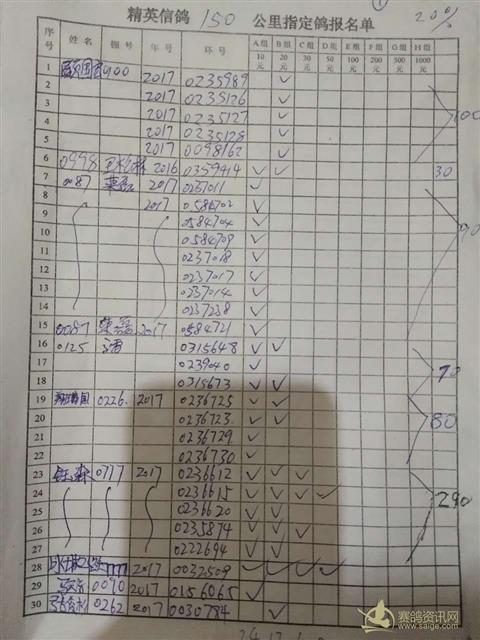 精英信鸽 150 公里指定鸽报名单 20%
序号 姓名 棚号 年号 环号 A组 10元 B组 20元 C组 30元 D组 50元 E组 100元 F组 200元 G组 500元 H组 1000元
1 0100 2017 0235989 ✓
2 2017 0235126 ✓
3 2017 0235127 ✓ 100
4 2017 0235128 ✓
5 2017 0098162 ✓
6 0998 2016 0359414 ✓ ✓ 30
7 0087 荣磊 2017 0237011 ✓
8 2017 0584702 ✓
9 0584704 ✓
10 0584709 ✓ 90
11 0237018 ✓
12 0237017 ✓
13 0237014 ✓
14 0237238 ✓
15 0087 荣磊 2017 0584721 ✓
16 0125 0315648 ✓ ✓
17 0239040 ✓ 70
18 0315673 ✓ ✓
19 0226 2017 0236725 ✓ ✓
20 0236723 ✓ ✓ 80
21 0236729 ✓
22 0236730 ✓
23 钰森 0777 2017 0236612 ✓ ✓ ✓
24 0236615 ✓ ✓ ✓ ✓ 290
25 0236620 ✓ ✓
26 0235874 ✓ ✓ ✓
27 0222694 ✓ ✓
28 2017 0032509 ✓ ✓ ✓ ✓
29 0090 2017 0156065 ✓
30 0262 2017 0030784 ✓
赛鸽资讯网
www.saige.com